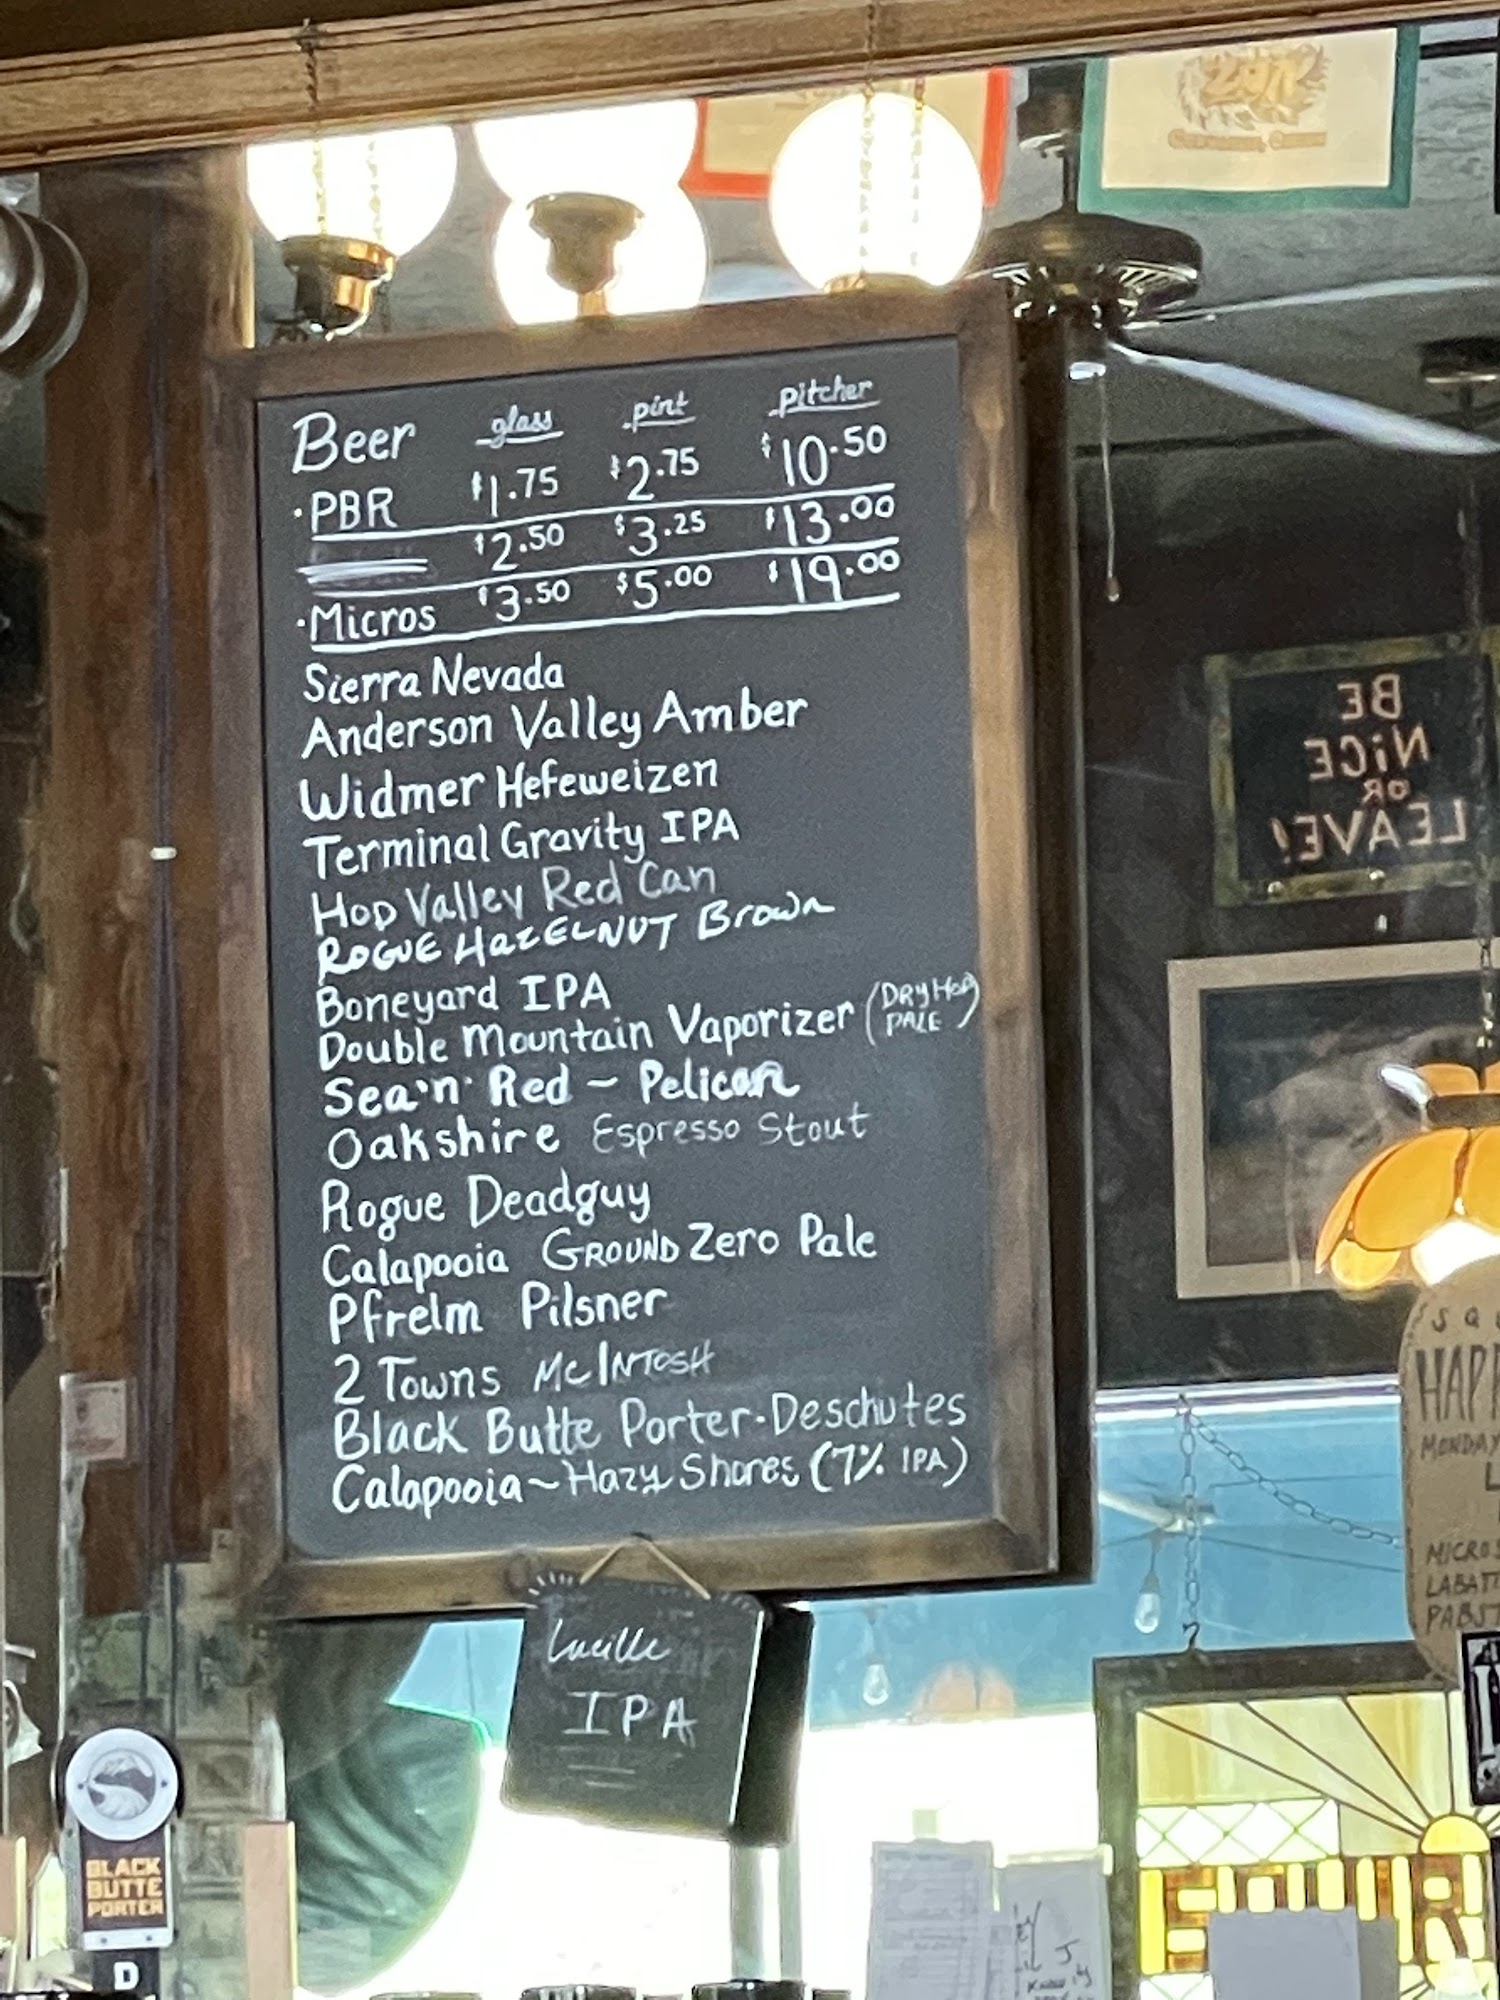 Beer glass pint pitcher
· PBR $1.75 $2.75 $10.50
$2.50 $3.25 $13.00
· Micros $3.50 $5.00 $19.00
Sierra Nevada
Anderson Valley Amber
Widmer Hefeweizen
Terminal Gravity IPA
Hop Valley Red Can
ROGUE HAZELNUT Brown
Boneyard IPA
Double Mountain Vaporizer (DRY HOP
PALE)
Sea'n' Red ~ Pelican
Oakshire Espresso Stout
Rogue Deadguy
Calapooia GROUND Zero Pale
Pfrelm Pilsner
2 Towns McINTOSH
Black Butte Porter - Deschutes
Calapooia ~ Hazy Shores (7% IPA)
Lucille
IPA
BE
NiCE
OR
LEAVE!
MONDAY
MICROS
BLACK
BUTTE
PORTER
D